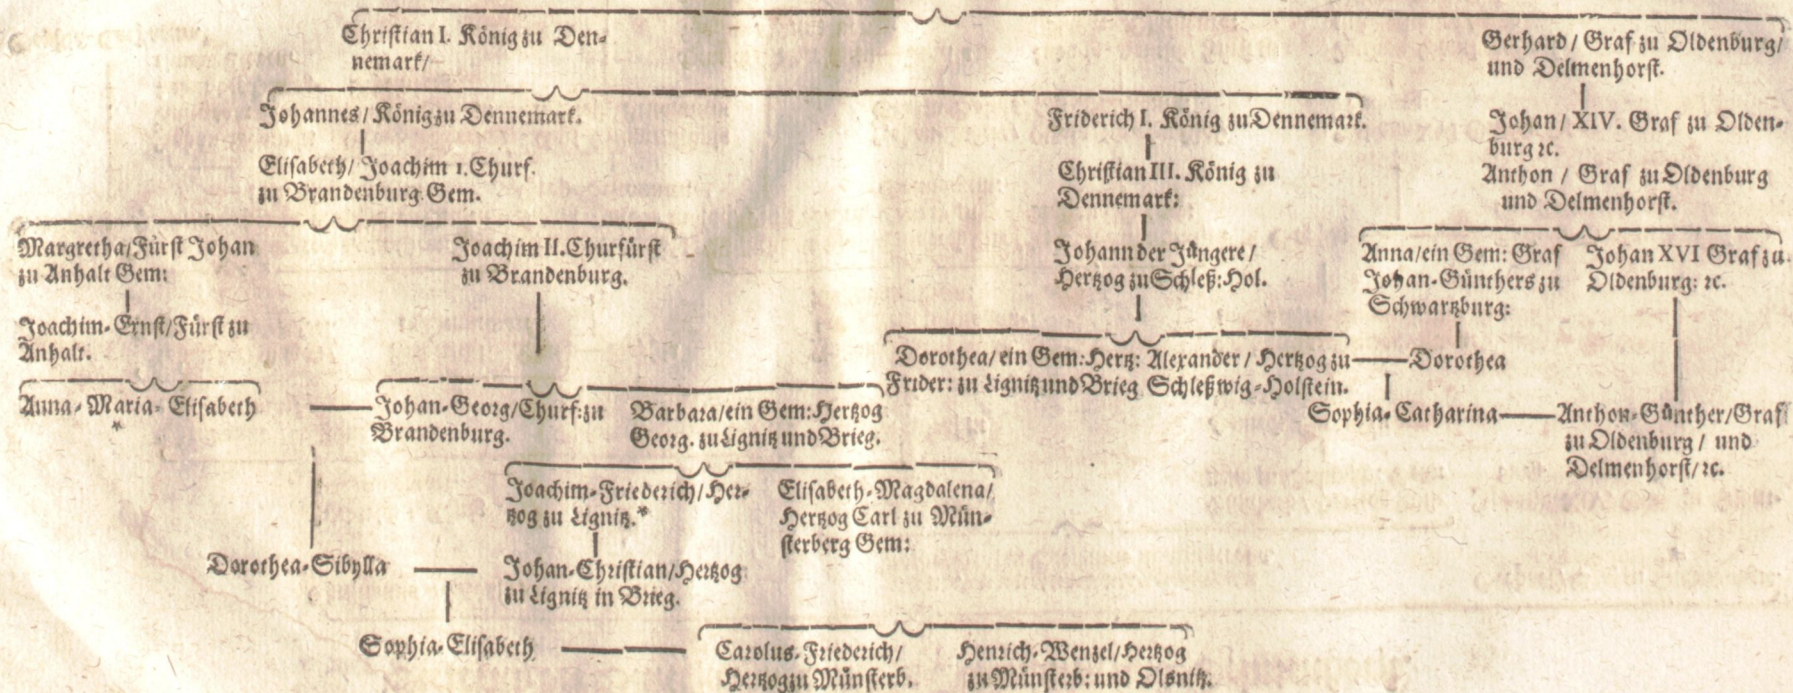 Christian I. König zu Den-
nemark/
Gerhard / Graf zu Oldenburg/
und Delmenhorst.
Johannes / König zu Dennemark.
Friderich I. König zu Dennemark.
Johan / XIV. Graf zu Olden-
burg ꝛc.
Elisabeth/ Joachim 1. Churf.
zu Brandenburg Gem.
Christian III. König zu
Dennemark:
Anthon / Graf zu Oldenburg
und Delmenhorst.
Margretha/Fürst Johan
zu Anhalt Gem:
Joachim II. Churfürst
zu Brandenburg.
Johann der Jüngere/
Hertzog zu Schleß: Hol.
Anna/ein Gem: Graf
Johan-Günthers zu
Schwartzburg:
Johan XVI Graf zu
Oldenburg: ꝛc.
Joachim-Ernst/Fürst zu
Anhalt.
Dorothea/ ein Gem: Hertz:
Frider: zu Lignitz und Brieg
Alexander / Hertzog zu
Schleßwig-Holstein.
Dorothea
Anna-Maria-Elisabeth
*
Johan-Georg/Churf: zu
Brandenburg.
Barbara/ein Gem: Hertzog
Georg. zu Lignitz und Brieg.
Sophia-Catharina
Anthon-Günther/Graf
zu Oldenburg / und
Delmenhorst/ ꝛc.
Joachim-Friederich/Her-
tzog zu Lignitz.*
Elisabeth-Magdalena/
Hertzog Carl zu Mün-
sterberg Gem:
Dorothea-Sibylla
Johan-Christian/Hertzog
zu Lignitz in Brieg.
Sophia-Elisabeth
Carolus-Friederich/
Hertzog zu Münsterb.
Henrich-Wenzel/Hertzog
zu Münsterb: und Olsnitz.